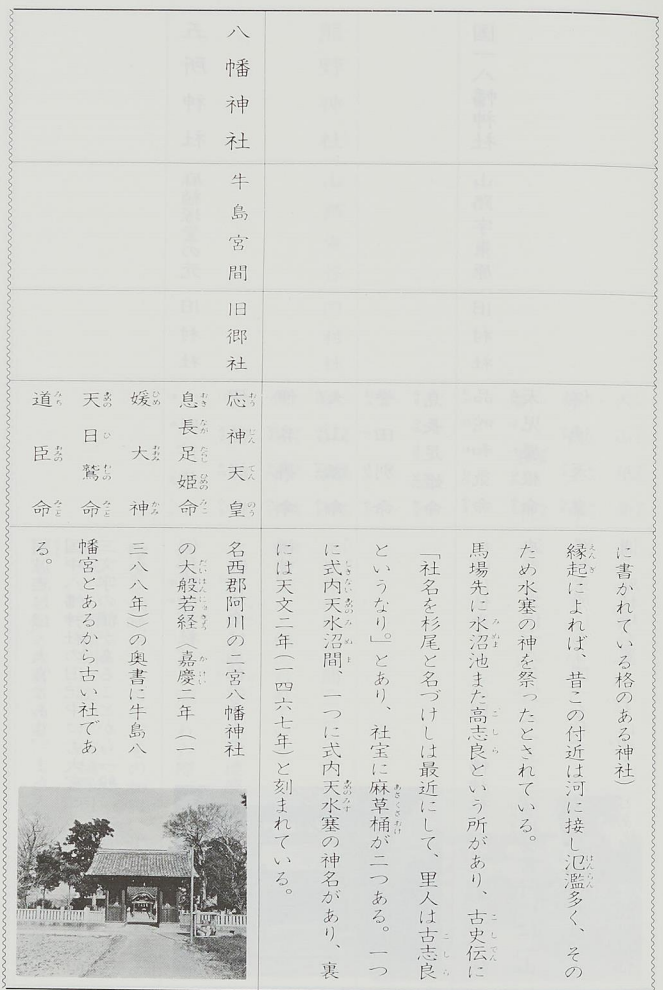 に書かれている格のある神社）
縁起によれば、昔この付近は河に接し氾濫多く、その
ため水塞の神を祭ったとされている。
馬場先に水沼池また高志良という所があり、古史伝に
「社名を杉尾と名づけしは最近にして、里人は古志良
というなり。」とあり、社宝に麻草桶が二つある。一つ
に式内天水沼間、一つに式内天水塞の神名があり、裏
には天文二年（一四六七年）と刻まれている。
八幡神社
牛島宮間
旧郷社
応神天皇
息長足姫命
媛大神
天日鷲命
道臣命
名西郡阿川の二宮八幡神社
の大般若経〈嘉慶二年（一
三八八年）〉の奥書に牛島八
幡宮とあるから古い社であ
る。